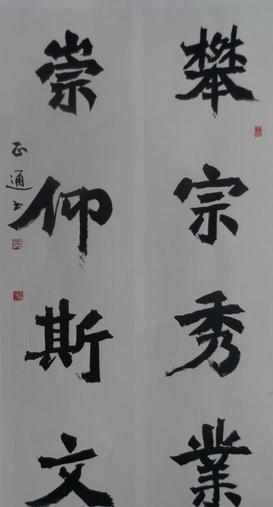 攀宗秀業
崇仰斯文
正通书